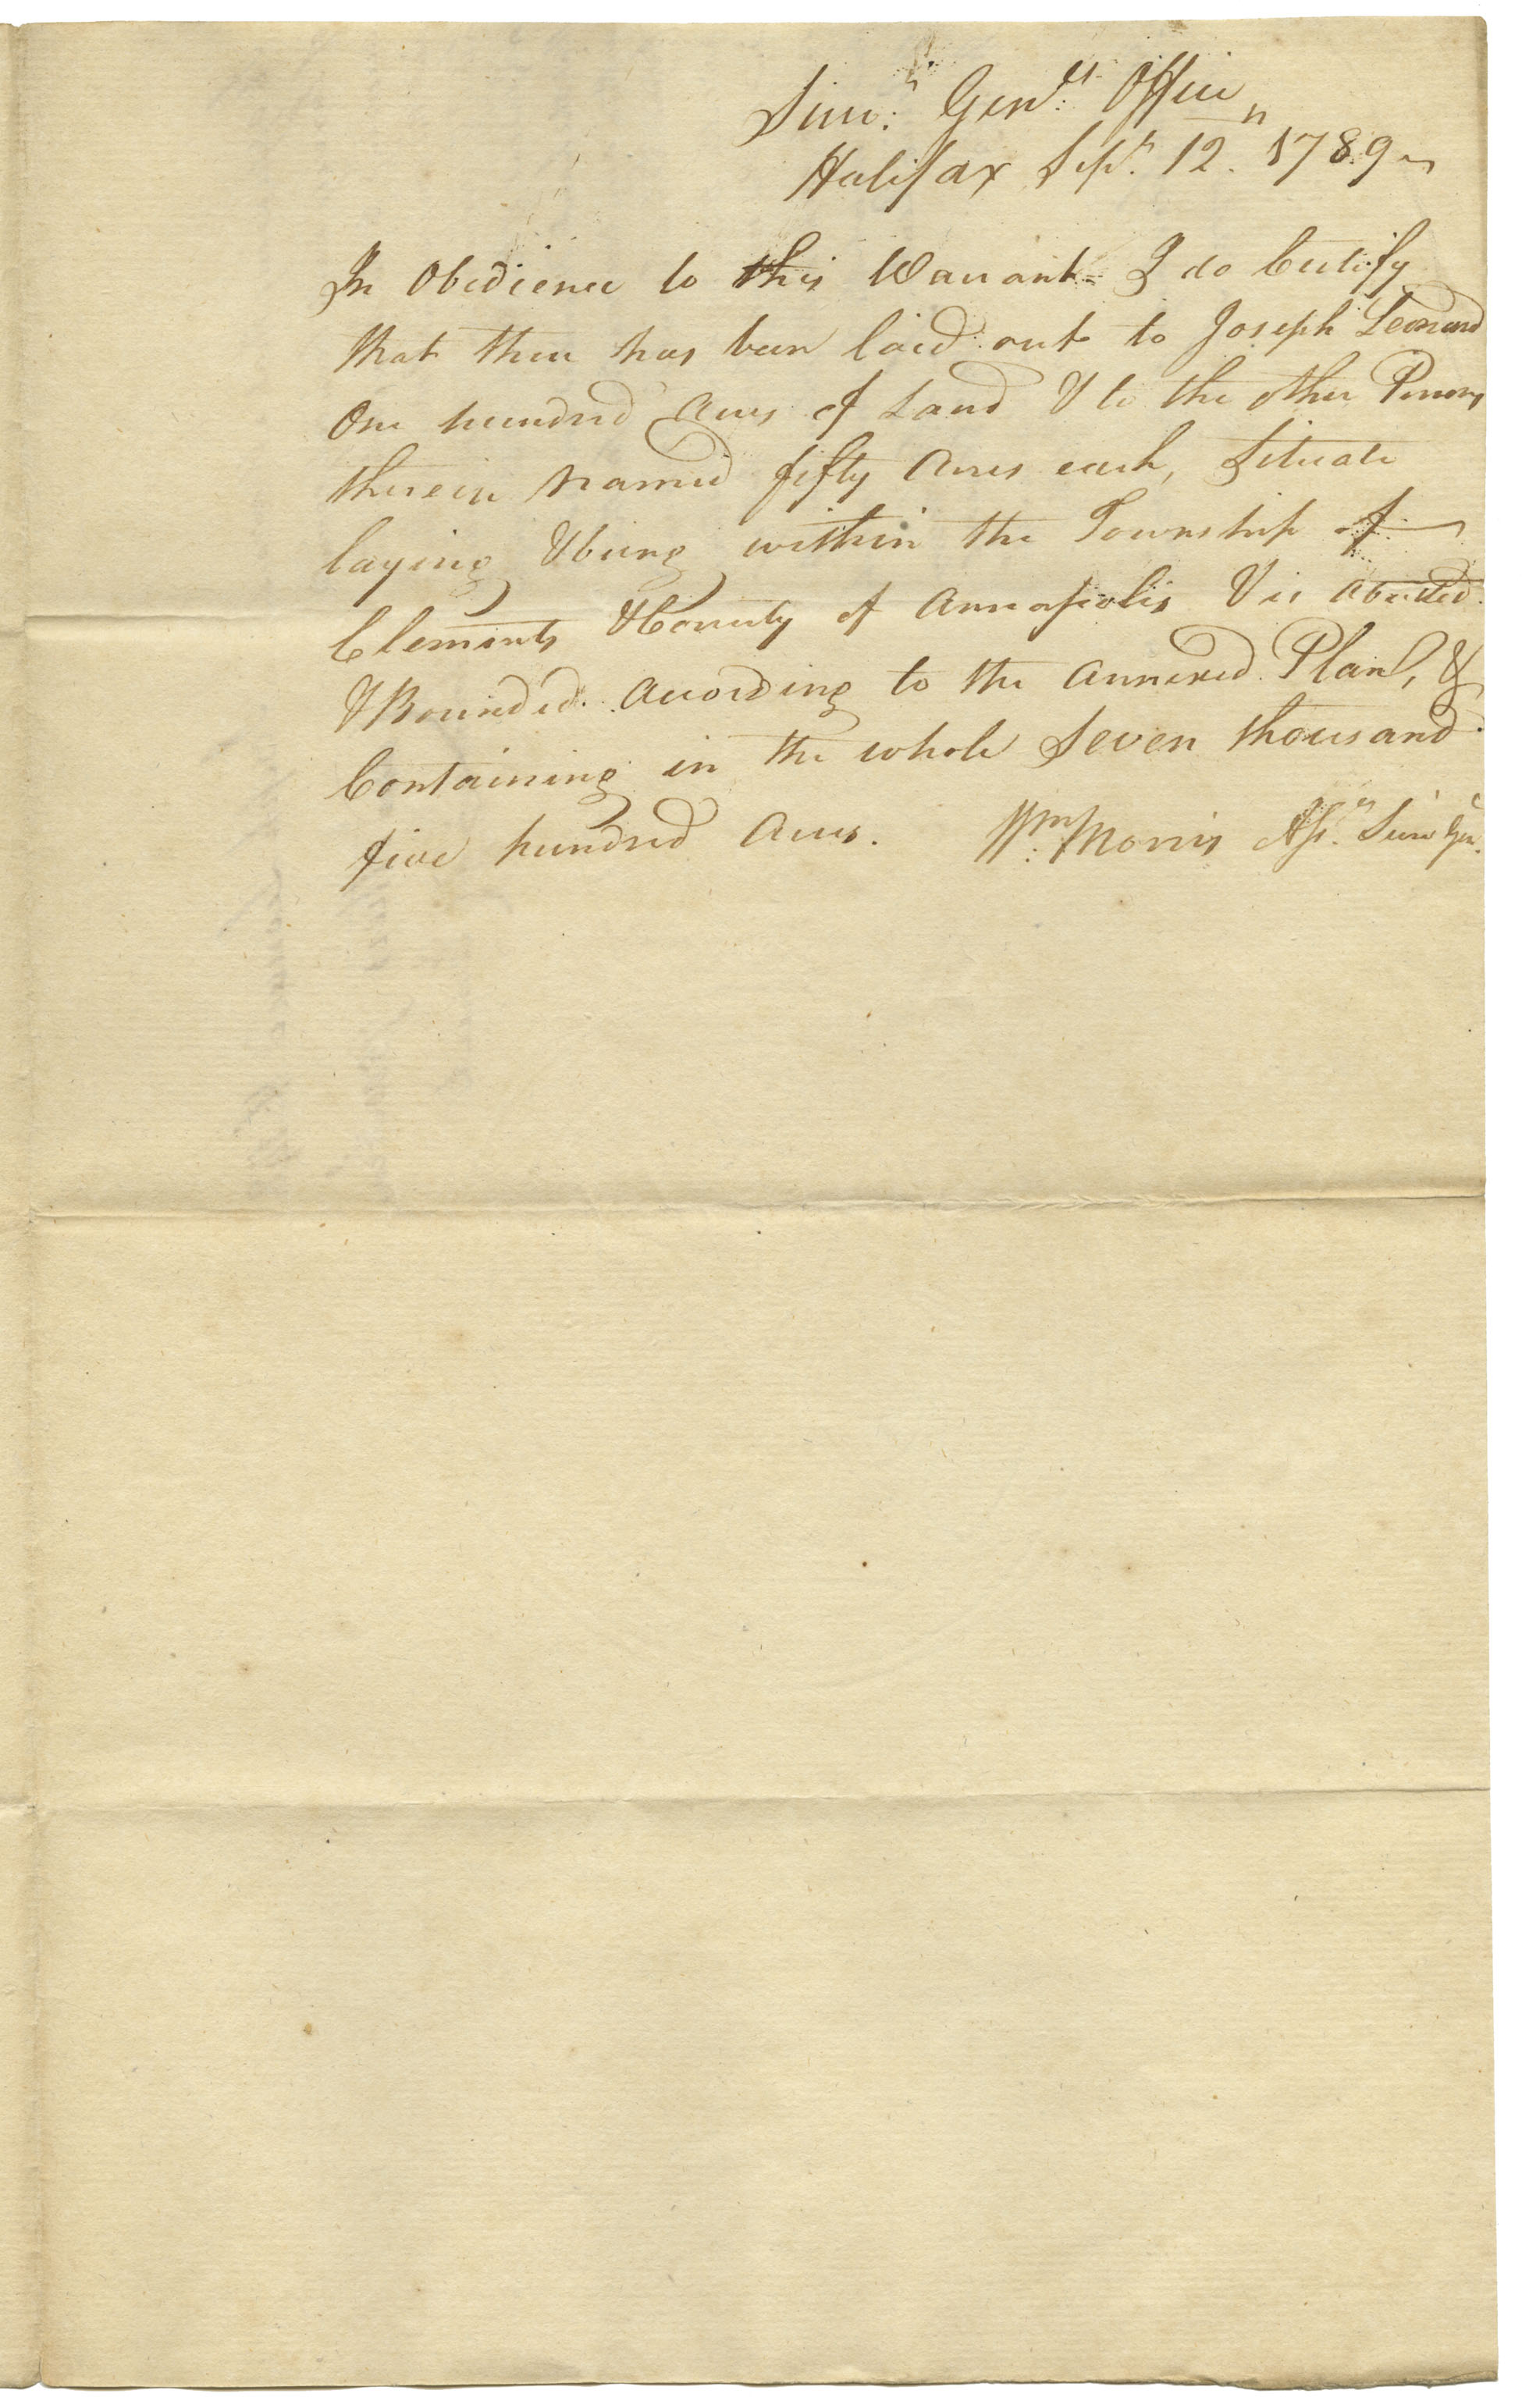 Surv.r Gen.ls Office
Halifax Sep.r 12.th 1789
In Obedience to this Warrant I do Certify
that there has been laid out to Joseph Leonard
One hundred Acres of Land & to the other Persons
therein named fifty Acres each, Situate
laying & being within the Township of
Clements & County of Annapolis & is abutted
& Bounded according to the annexed Plan, &
Containing in the whole Seven thousand
five hundred Acres. Wm. Morris Surv Gen.